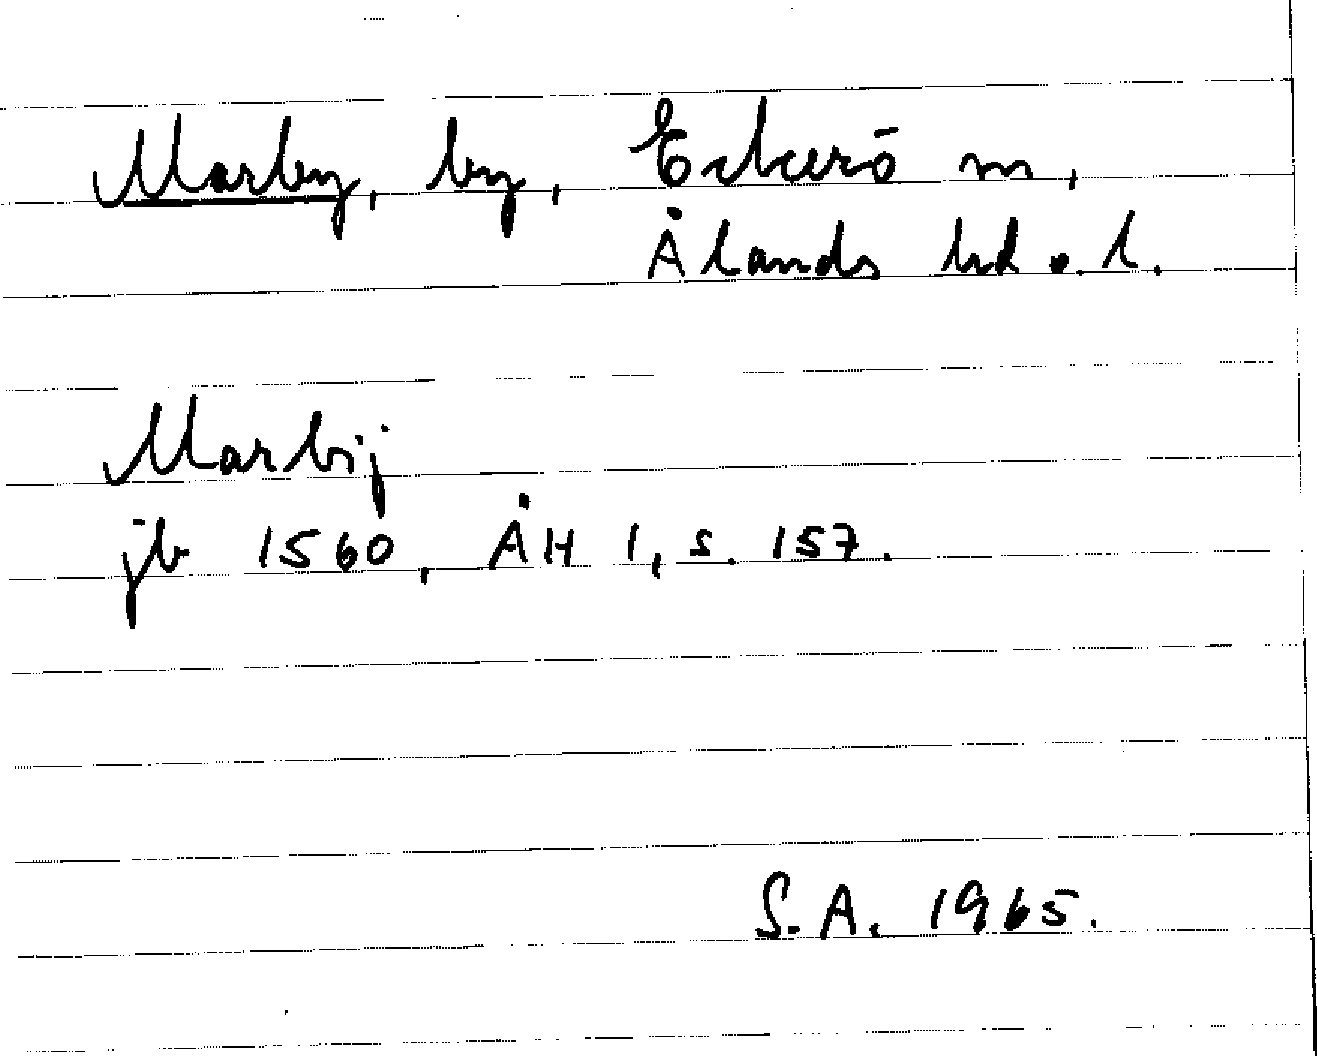 Marby, by, Eckerö m,
Ålands hd o. l.
Marbij
jb 1560, ÅH 1, s. 157.
S.A. 1965.